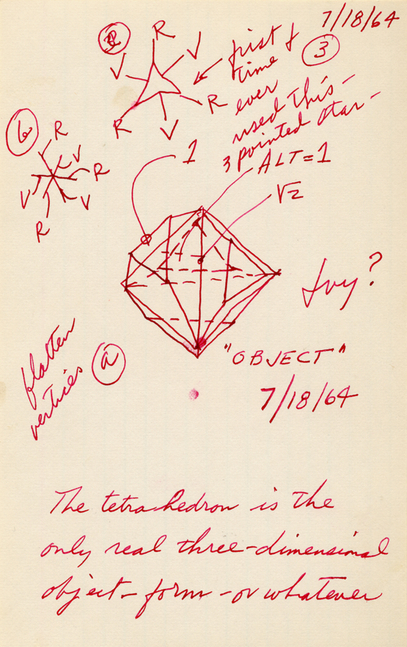 7/18/64
R
V
V
R
R
V
first
time
ever
used this-
3 pointed star-
3
6
R
V
R
V
V
R
1
ALT=1
√2
"OBJECT"
7/18/64
flatten
vertices
a
The tetrahedron is the
only real three-dimensional
object-form-or whatever